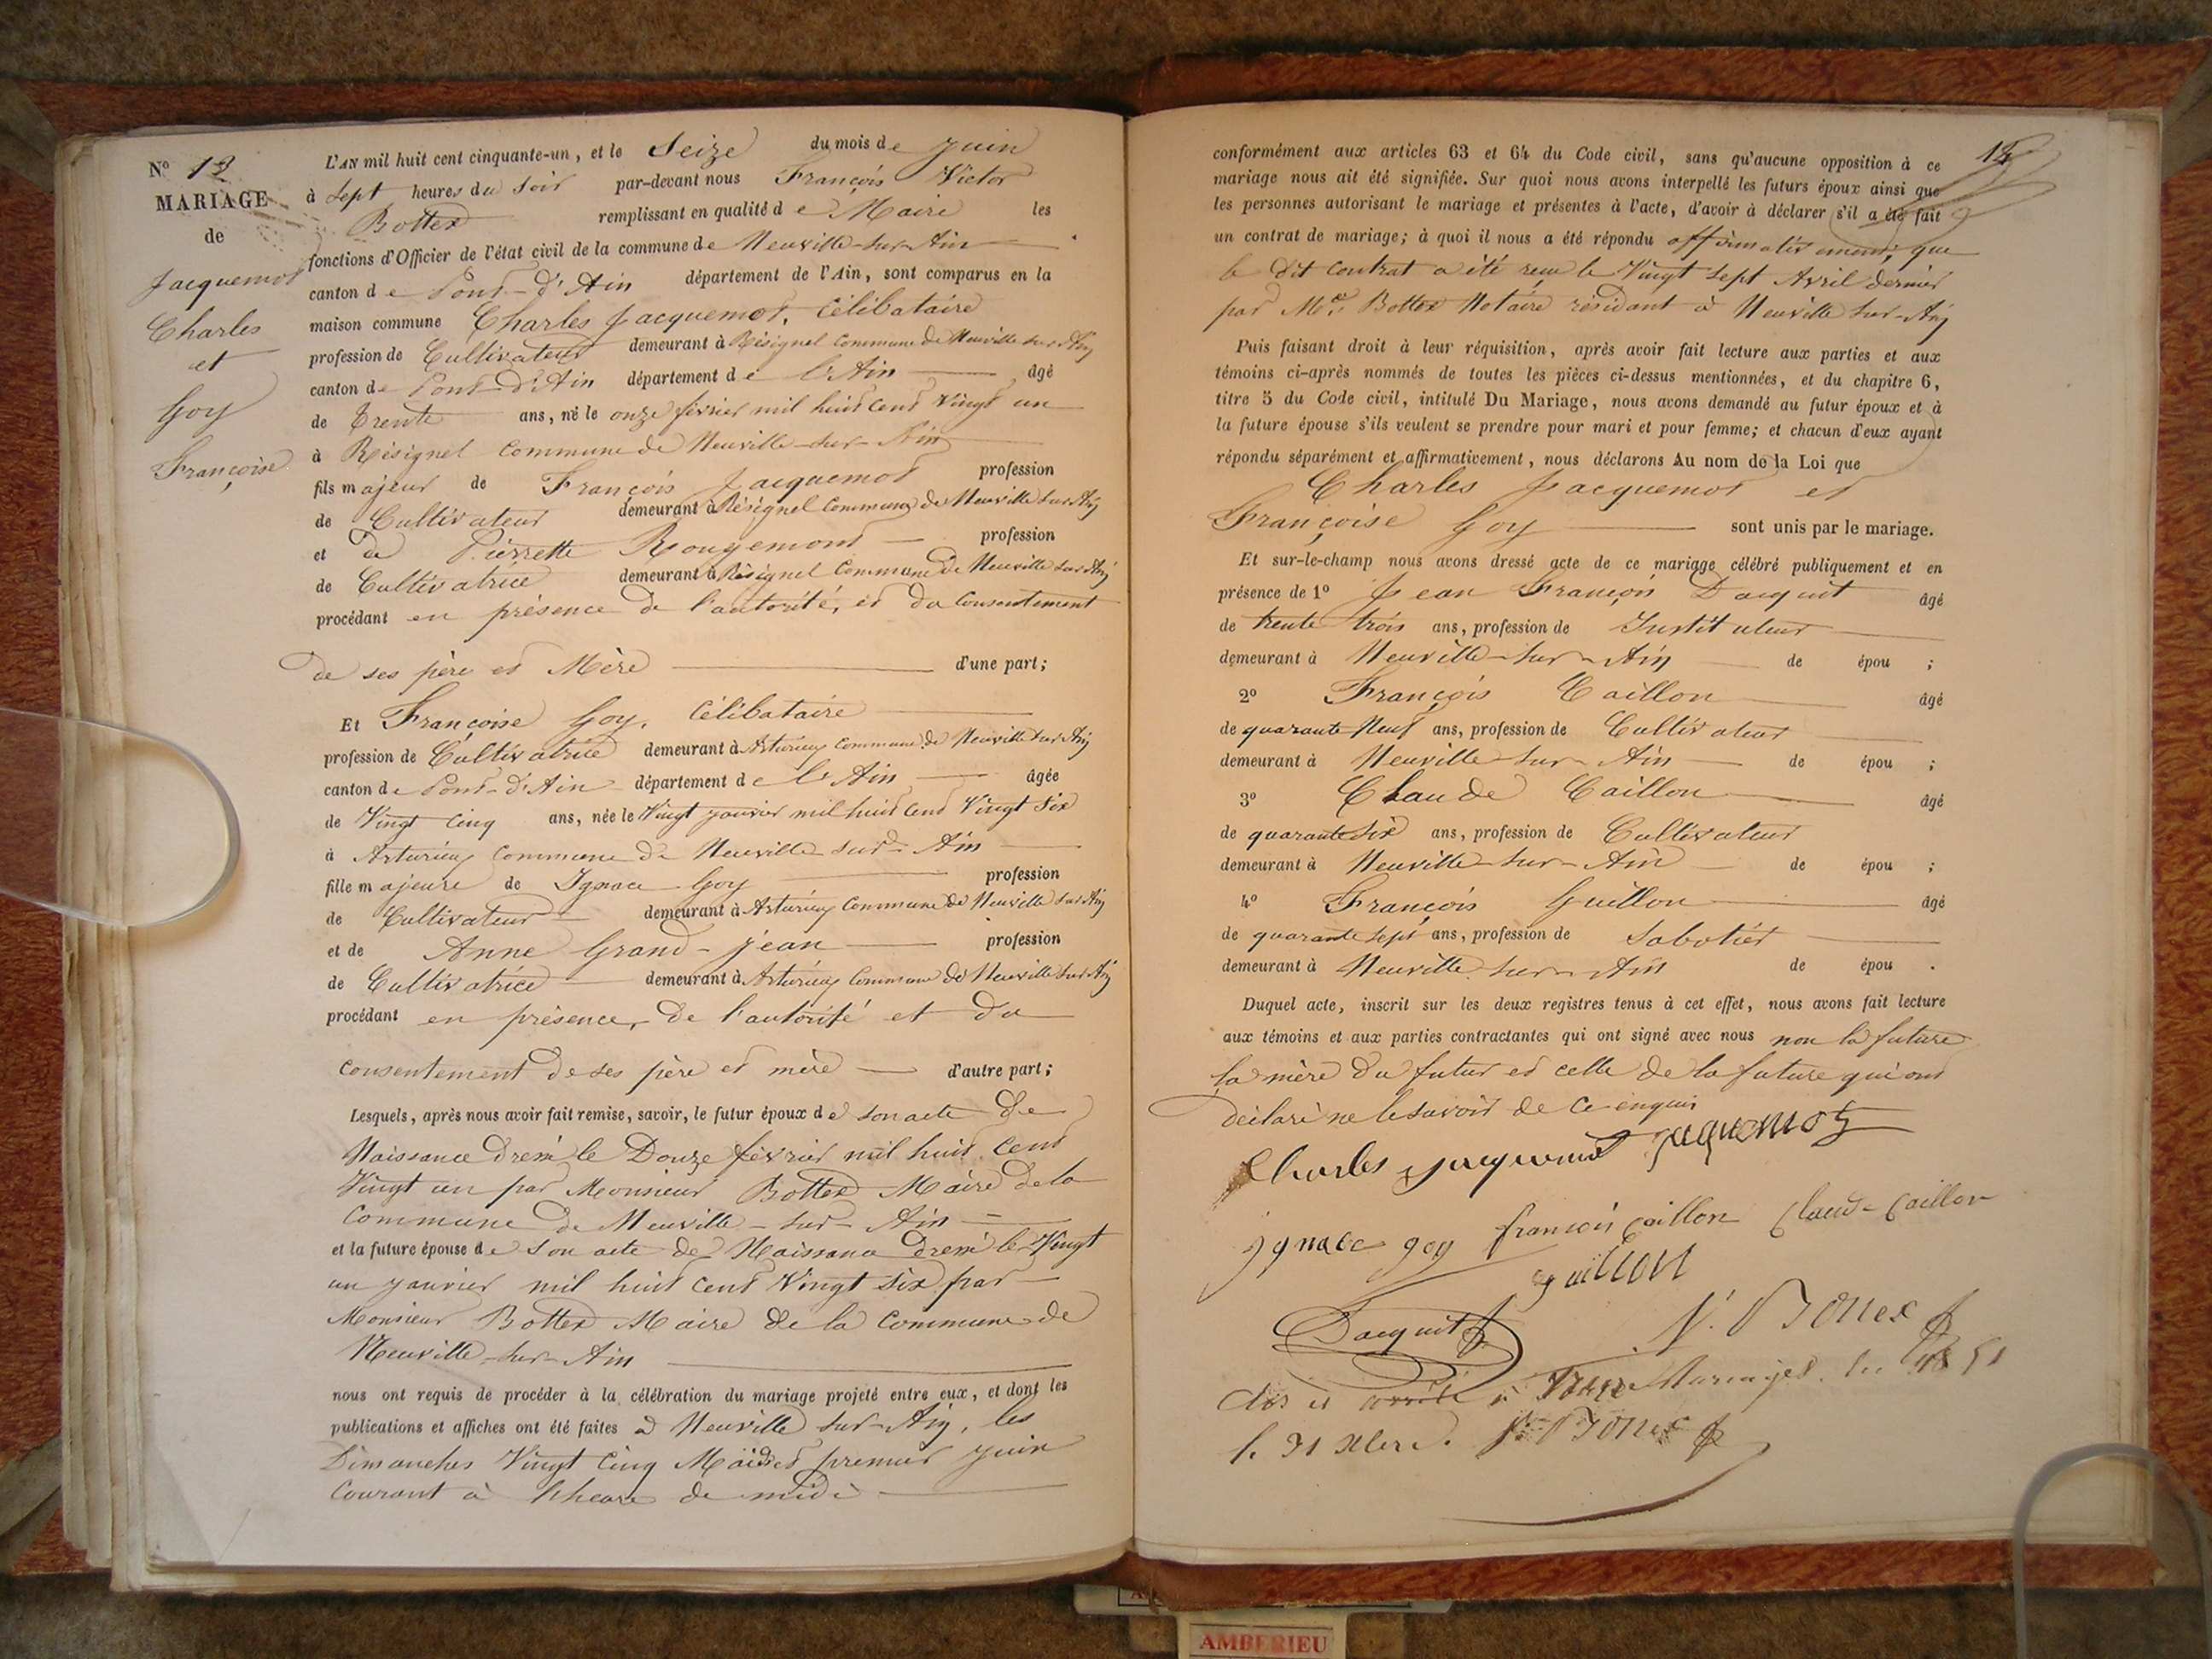 N.º 13
MARIAGE
de
Jacquemot
Charles
et
Goy
Françoise
L'AN mil huit cent cinquante-un, et le Seize du mois de Juin
à Sept heures du Soir par-devant nous François Victor
Bottex remplissant en qualité de Maire les
fonctions d'Officier de l'état civil de la commune de Neuville-sur-Ain
canton de Pont-d'Ain département de l'Ain, sont comparus en la
maison commune Charles Jacquemot, Célibataire
profession de Cultivateur demeurant à Résignel Commune de Neuville sur Ain
canton de Pont-d'Ain département de l'Ain âgé
de Trente ans, né le onze février mil huit cent vingt un
à Résignel Commune de Neuville-sur-Ain
fils majeur de François Jacquemot profession
de Cultivateur demeurant à Résignel Commune de Neuville sur Ain
et de Pierrette Rougemont profession
de Cultivatrice demeurant à Résignel Commune de Neuville sur Ain
procédant en présence de l'autorité, et du Consentement
de ses père et Mère d'une part;
Et Françoise Goy, Célibataire
profession de Cultivatrice demeurant à Arturieux Commune de Neuville sur Ain
canton de Pont-d'Ain département de l'Ain âgée
de Vingt Cinq ans, née le Vingt janvier mil huit Cent Vingt Six
à Arturieux Commune de Neuville sur-Ain
fille majeure de Ignace Goy profession
de Cultivateur demeurant à Arturieux Commune de Neuville sur Ain
et de Anne Grand-jean profession
de Cultivatrice demeurant à Arturieux Commune de Neuville sur Ain
procédant en présence, de l'autorité et du
consentement de ses père et mère d'autre part;
Lesquels, après nous avoir fait remise, savoir, le futur époux de son acte de
Naissance dressé le Douze février mil huit Cent
Vingt un par Monsieur Bottex Maire de la
Commune de Neuville-sur-Ain
et la future épouse de son acte de Naissance dressé le Vingt
un janvier mil huit Cent Vingt Six par
Monsieur Bottex Maire de la Commune de
Neuville-sur-Ain
nous ont requis de procéder à la célébration du mariage projeté entre eux, et dont les
publications et affiches ont été faites à Neuville sur-Ain, les
Dimanches Vingt Cinq Mai et premier Juin
Courant à l'heure de midi
conformément aux articles 63 et 64 du Code civil, sans qu'aucune opposition à ce
mariage nous ait été signifiée. Sur quoi nous avons interpellé les futurs époux ainsi que
les personnes autorisant le mariage et présentes à l'acte, d'avoir à déclarer s'il a été fait
un contrat de mariage; à quoi il nous a été répondu affirmativement, que
le dit Contrat a été reçu le Vingt Sept Avril dernier
par Me Bottex Notaire résidant à Neuville sur-Ain
Puis faisant droit à leur réquisition, après avoir fait lecture aux parties et aux
témoins ci-après nommés de toutes les pièces ci-dessus mentionnées, et du chapitre 6,
titre 5 du Code civil, intitulé Du Mariage, nous avons demandé au futur époux et à
la future épouse s'ils veulent se prendre pour mari et pour femme; et chacun d'eux ayant
répondu séparément et affirmativement, nous déclarons Au nom de la Loi que
Charles Jacquemot et
Françoise Goy sont unis par le mariage.
Et sur-le-champ nous avons dressé acte de ce mariage célébré publiquement et en
présence de 1º Jean François Dacquit âgé
de trente trois ans, profession de Instituteur
demeurant à Neuville-sur-Ain de épou ;
2º François Caillon âgé
de quarante Neuf ans, profession de Cultivateur
demeurant à Neuville-sur-Ain de épou ;
3º Claude Caillon âgé
de quarante Six ans, profession de Cultivateur
demeurant à Neuville-sur-Ain de épou ;
4º François Guillon âgé
de quarante Sept ans, profession de Sabotier
demeurant à Neuville sur-Ain de épou .
Duquel acte, inscrit sur les deux registres tenus à cet effet, nous avons fait lecture
aux témoins et aux parties contractantes qui ont signé avec nous non la future
la mère du futur et celle de la future qui ont
déclaré ne le savoir de ce enquis
Charles jacquemot jaquemot
ignace goy françois caillon Claude Caillon
guillon
Dacquit
V. Bottex
Clos et arrêté à Mariages. 1851
le 31 Xbre. V. Bottex
AMBERIEU